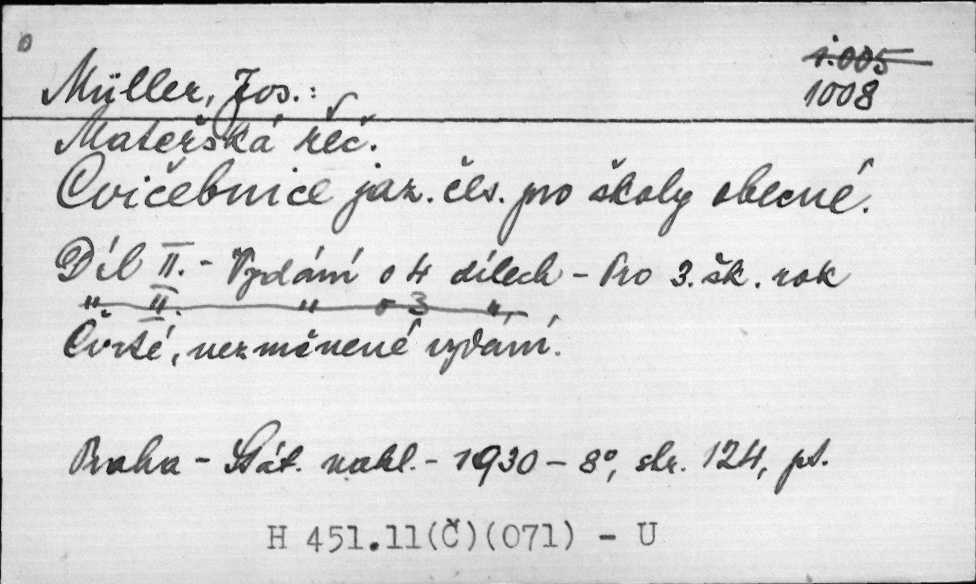 i.005
Müller, Jos.: 1008
Mateřská řeč.
Cvičebnice jaz. čes. pro školy obecné.
Díl II. - Vydání o 4 dílech - Pro 3. šk. rok
" II. " o 3 "
Čtvrté, nezměněné vydání.
Praha - Stát. nakl. - 1930 - 8°, str. 124, pt.
H 451.11(Č)(071) - U